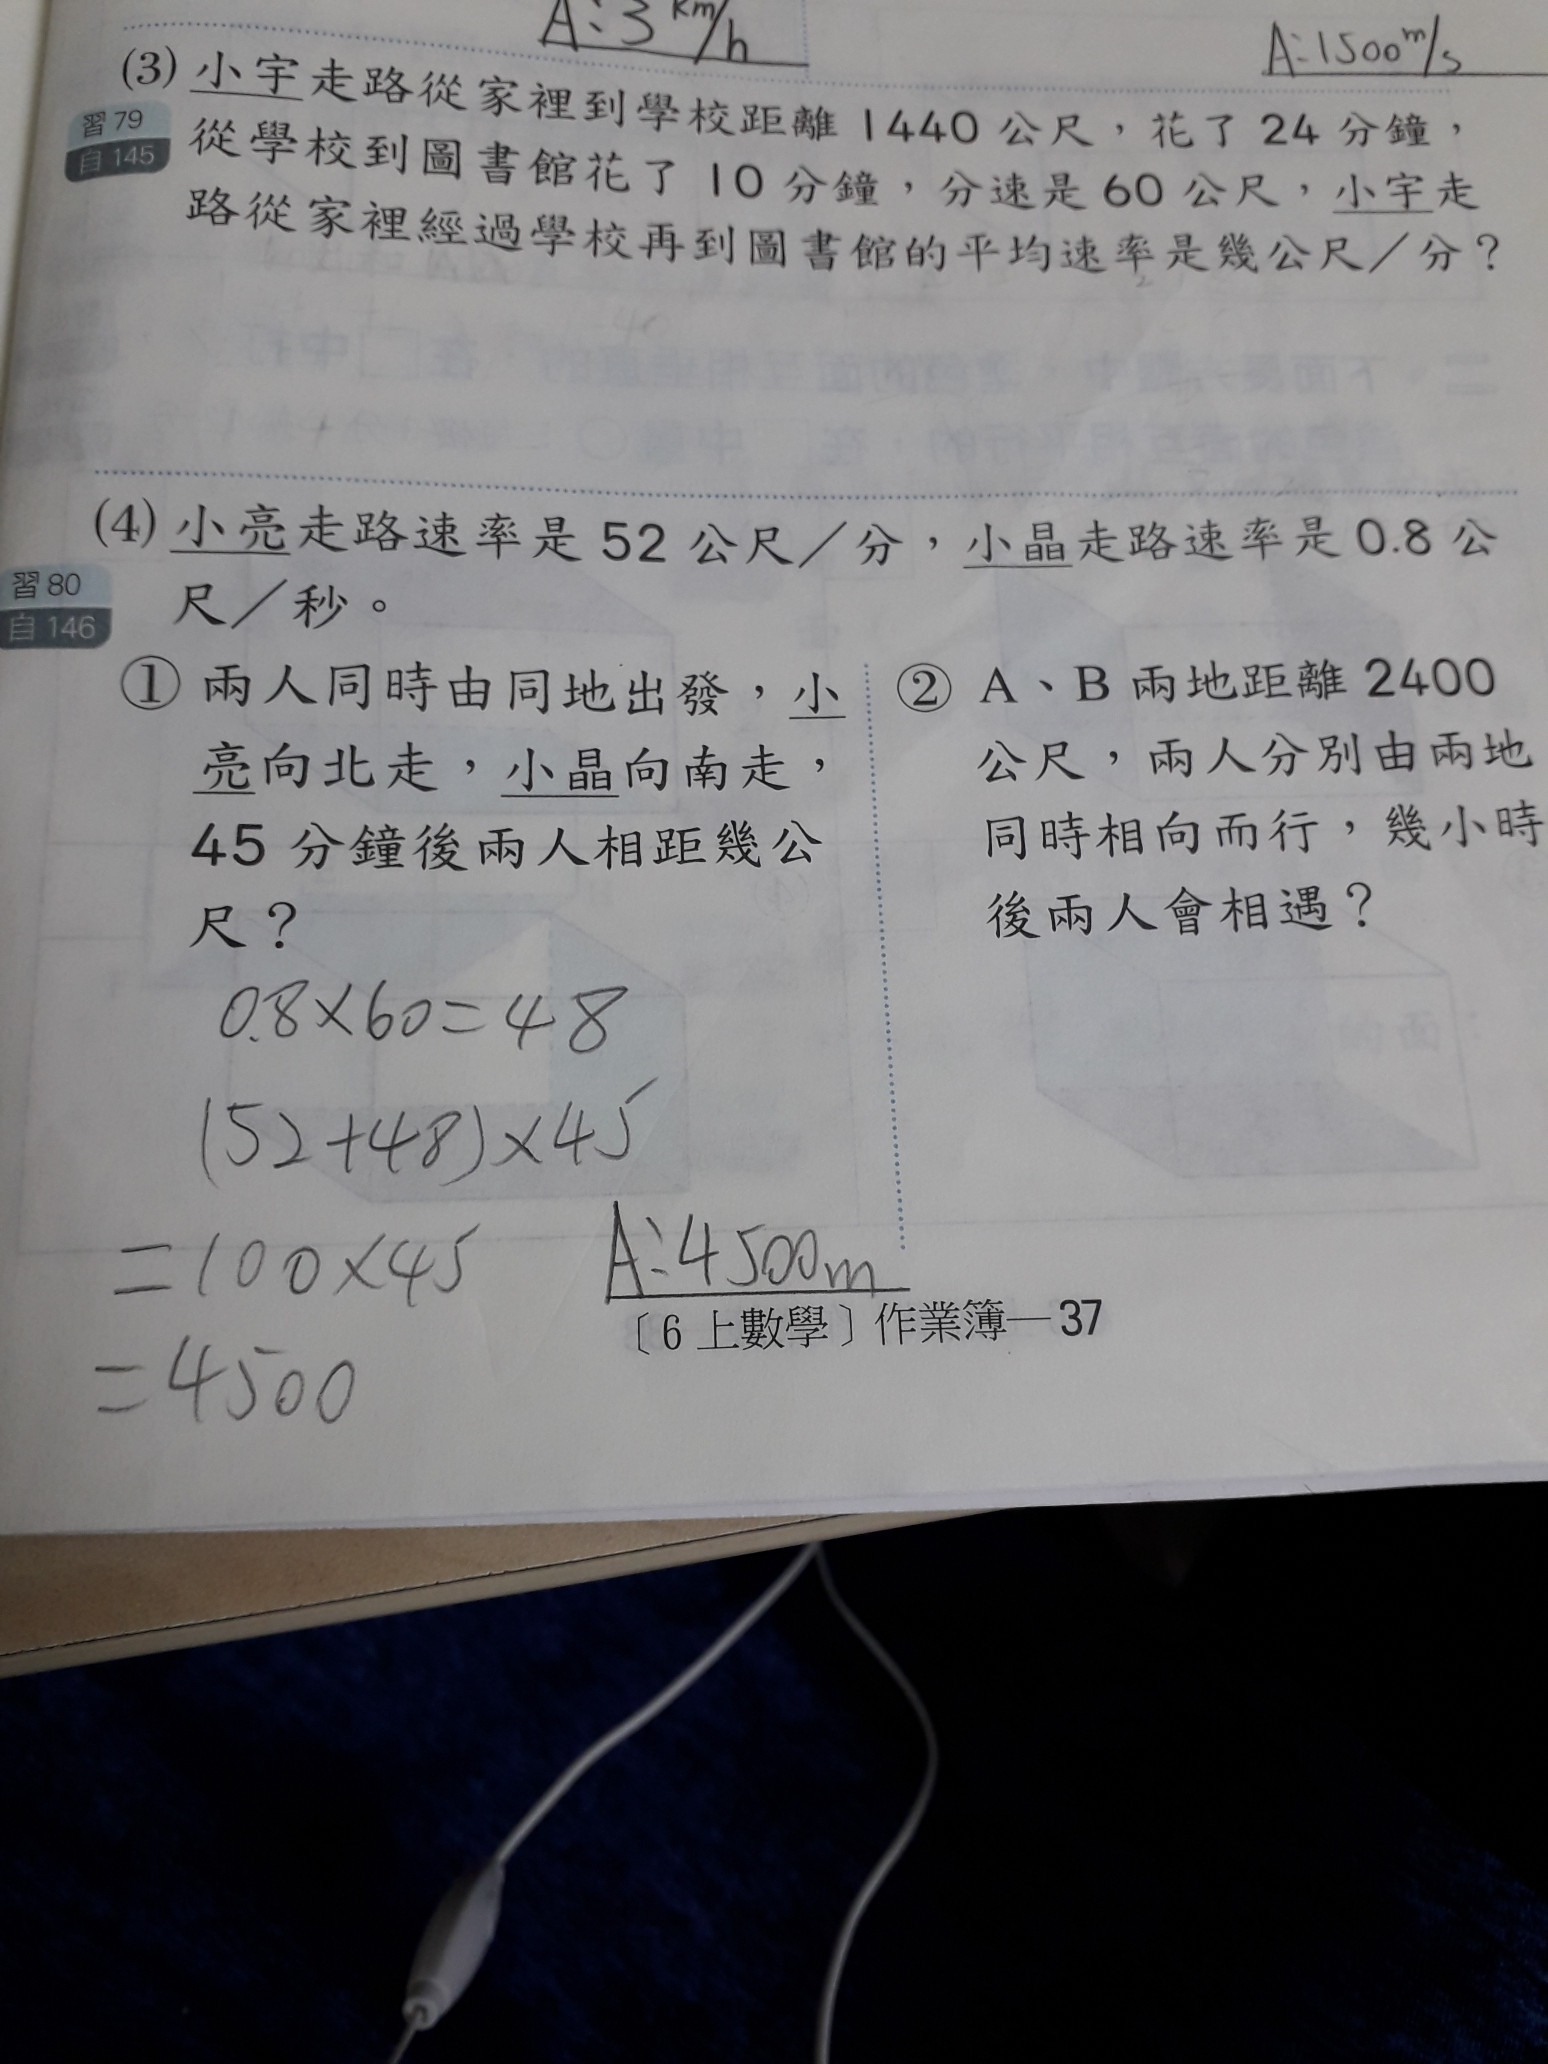 A:3 km/h
A:1500m/s
(3) 小宇走路從家裡到學校距離 1440 公尺，花了 24 分鐘，
習79
自145
從學校到圖書館花了 10 分鐘，分速是 60 公尺，小宇走
路從家裡經過學校再到圖書館的平均速率是幾公尺／分？
(4) 小亮走路速率是 52 公尺／分，小晶走路速率是 0.8 公
習80
自146
尺／秒。
① 兩人同時由同地出發，小
亮向北走，小晶向南走，
45 分鐘後兩人相距幾公
尺？
0.8×60=48
(52+48)×45
=100×45
=4500
A:4500m
② A、B 兩地距離 2400
公尺，兩人分別由兩地
同時相向而行，幾小時
後兩人會相遇？
〔6 上數學〕作業簿—37